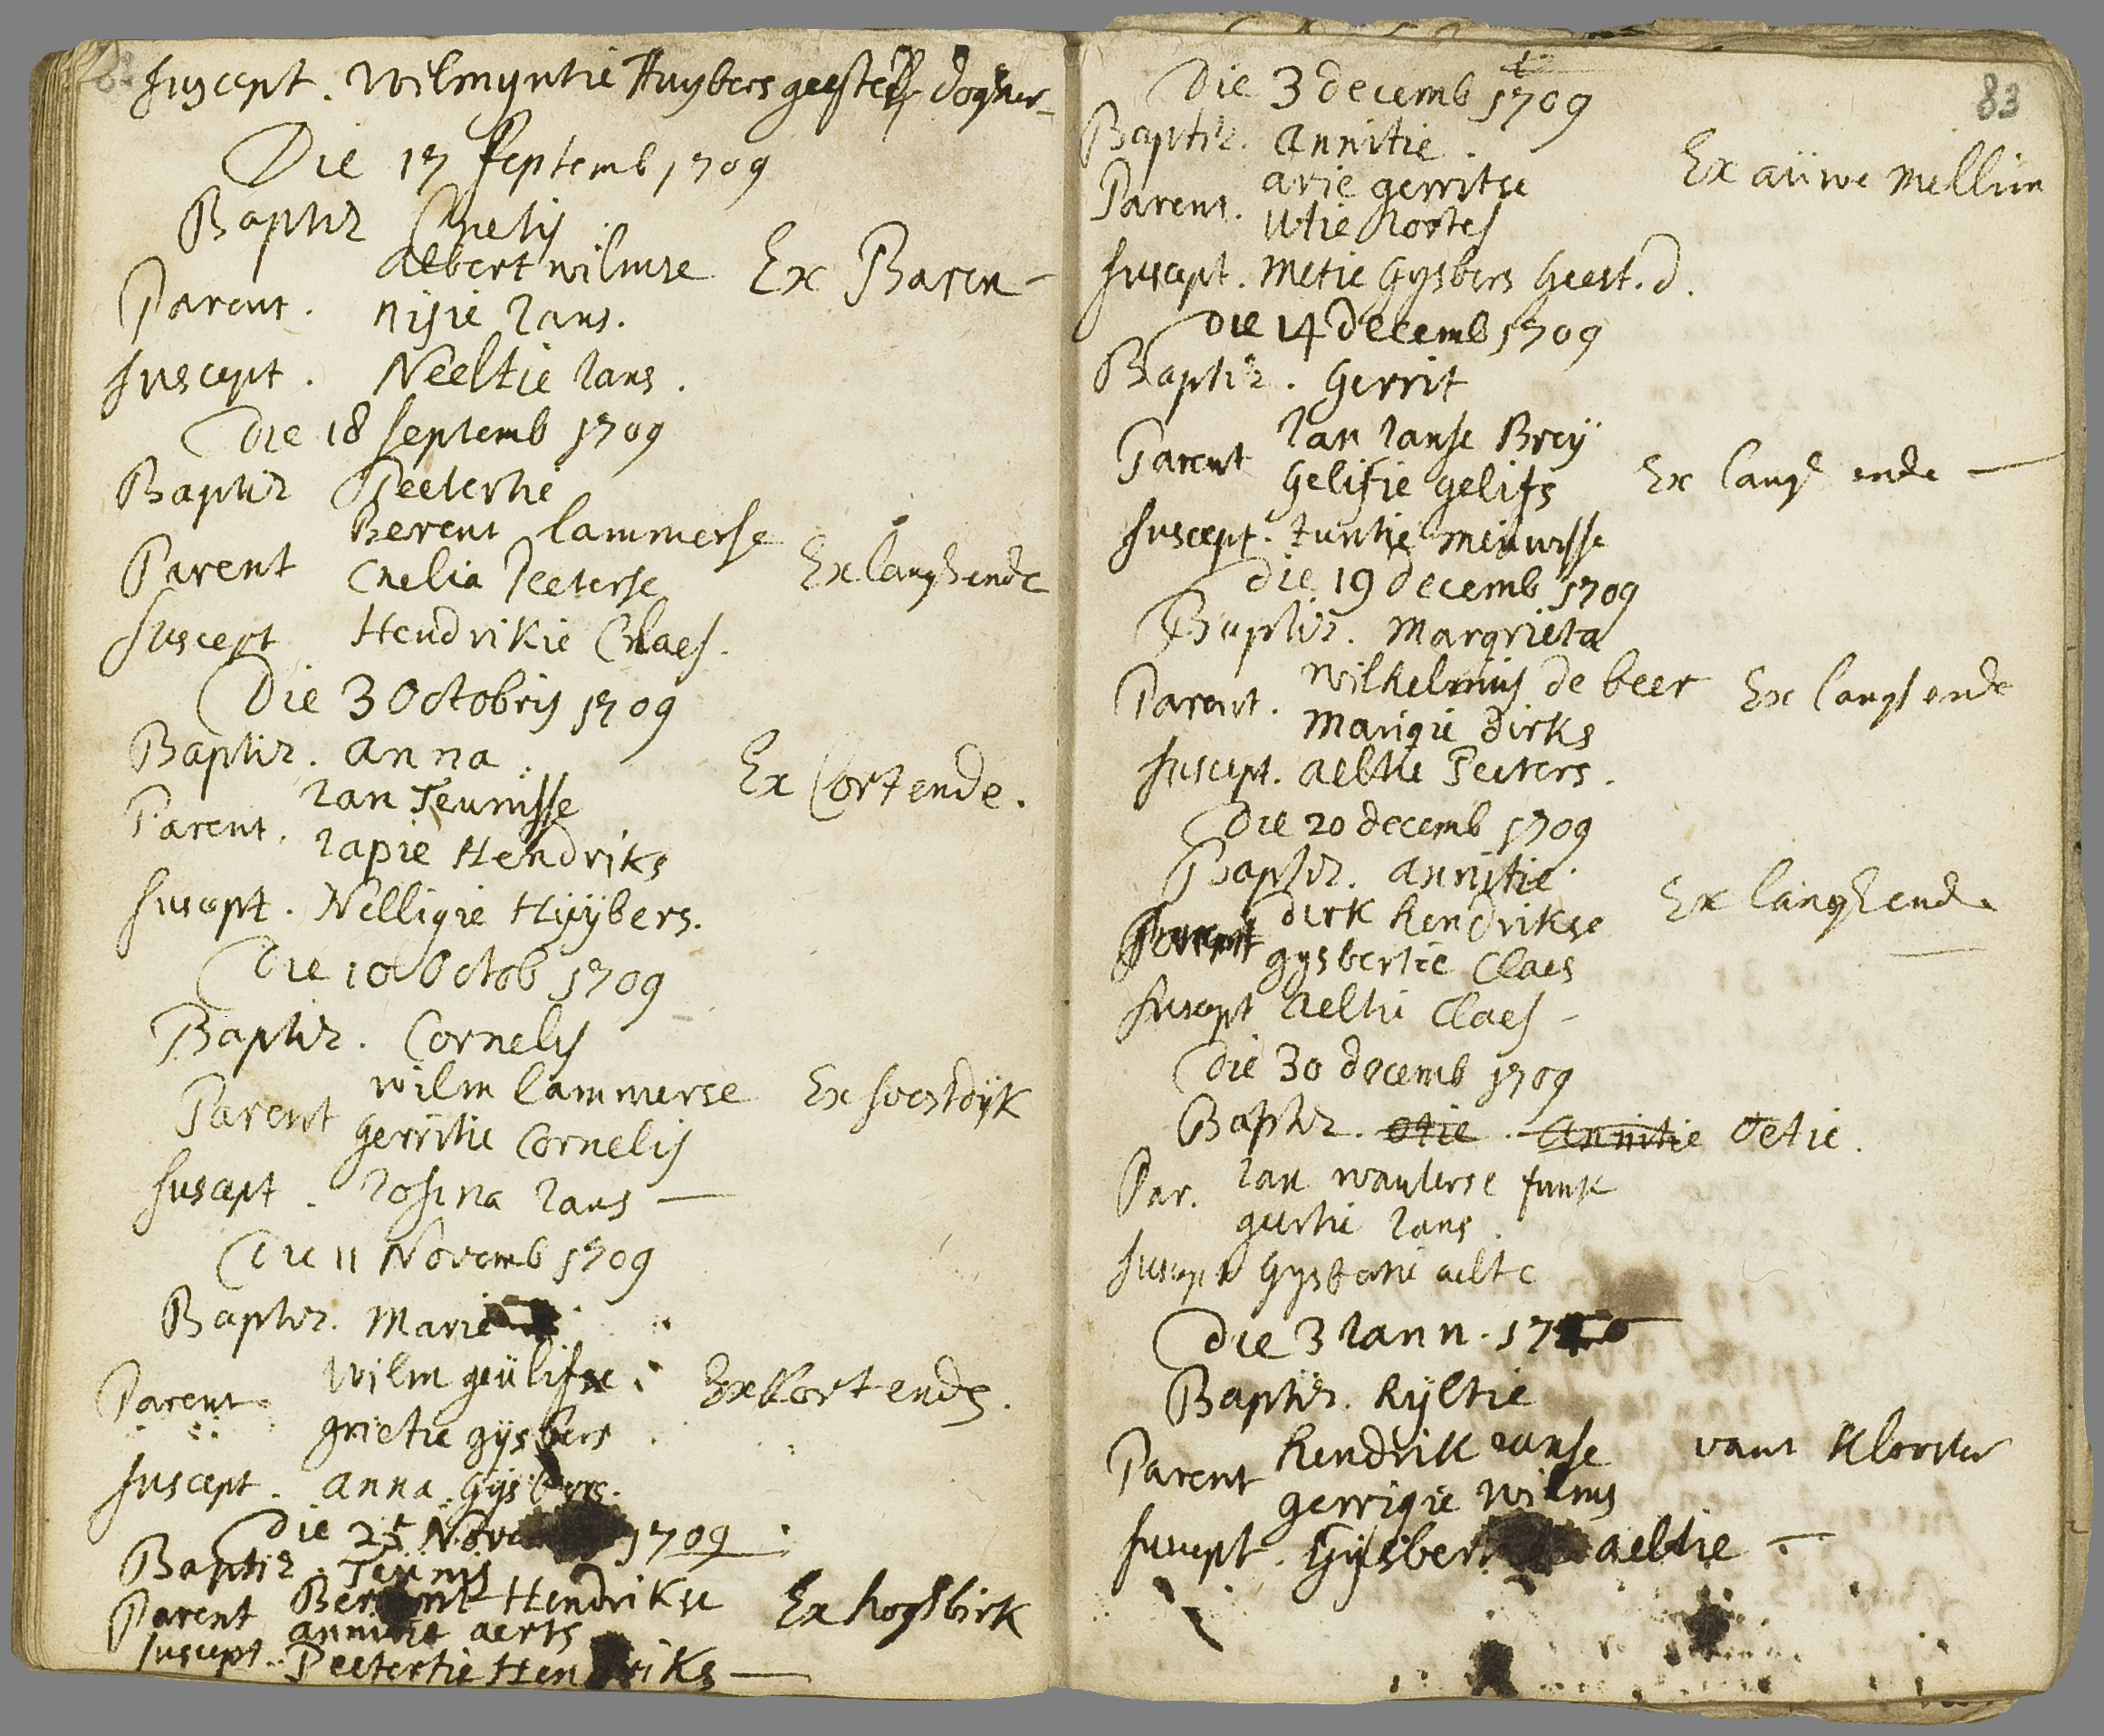 82
suscept. Wilmyntie Huybers geestel dogter
Die 17 septemb 1709
Baptiz Cnelis
albert wilmse
Parent. Ex Baren -
nisie Ians.
suscept. Neeltie Ians.
Die 18 septemb 1709
Baptiz Peetertie
Berent lammerse
Parent Ex langhende
Cnelia Peeterse
suscept Hendrikie Claes.
Die 3 Octobris 1709
Baptiz. anna.
Ian Teunisse Ex Cortende.
Parent.
Iapie Hendriks
suscept. Nelligie Huÿbers.
Die 10 Octob 1709
Baptiz. Cornelis
wilm lammerse Ex soestdijk
Parent
gerritie Cornelis
suscept. Iosina Ians —
Die 11 Novemb 1709
Baptiz. Marie
wilm geülifse
Parent Ex Kortende.
grietie gijsbers
suscept. anna. Gijsbers.
Die 25 Nov 1709
Baptiz. Teunis
Berent Hendrikse
Parent Ex hogsbirk
annitie aerts
suscept. Peetertie Hendriks —
83
Die 3 decemb 1709
Baptiz. annitie.
arie gerritse Ex aüwe mellim
Parent.
utie hortes
suscept. metie Gysbers Geest. d.
Die 14 decemb 1709
Baptiz. Gerrit
Ian Ianse Breÿ
Parent Ex langh ende —
Gelifie gelifs
suscept. tuntie meinwsse
Die 19 decemb 1709
Baptiz. Margrieta
wilhelmus de beer
Parent. Ex langhende
Marigie dirks
suscept. aeltie Peeters.
Die 20 decemb 1709
Baptiz. annitie.
dirk hendrikse Ex langhende
Parent
gysbertie Claes
suscept aeltie Claes -
Die 30 decemb 1709
Baptiz. otie. annitie Oetie.
Ian wouterse funk
Par.
geertie Ians.
suscept Gysbertie aelte
Die 3 Iann. 1710
Baptiz. hijltie
hendrik Ianse vant Klooster
Parent
gerrigie wilms
suscept. Gijsber aeltie -